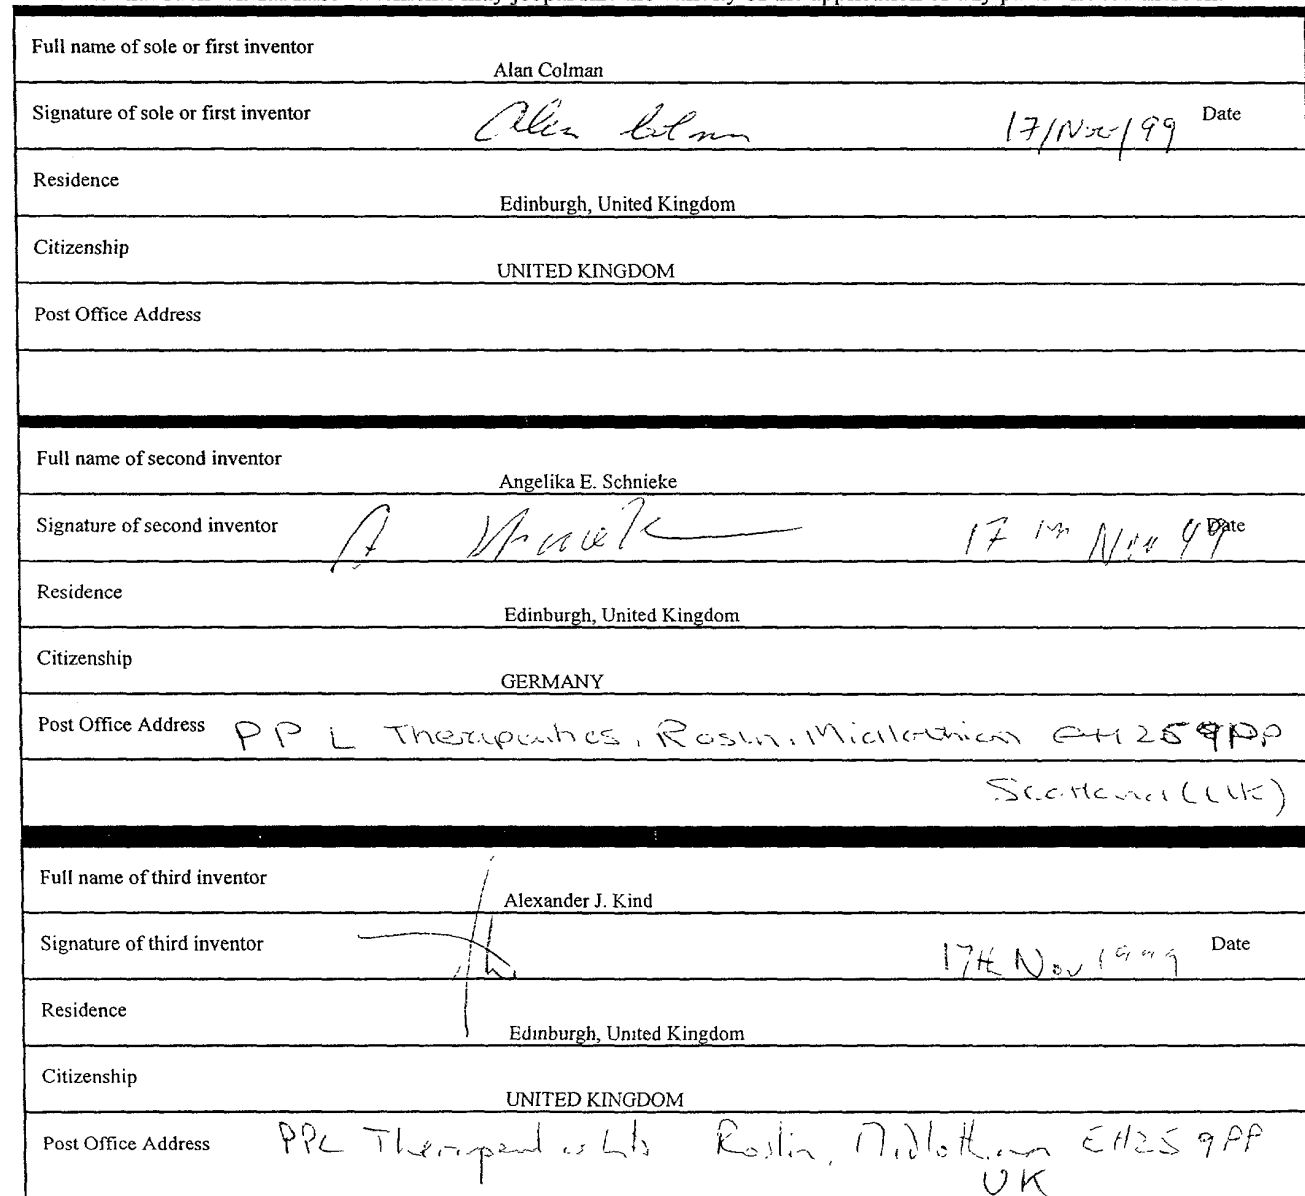 Full name of sole or first inventor
Alan Colman
Signature of sole or first inventor Alan Colman 17/Nov/99 Date
Residence
Edinburgh, United Kingdom
Citizenship
UNITED KINGDOM
Post Office Address
Full name of second inventor
Angelika E. Schnieke
Signature of second inventor A Schnieke 17th Nov 99 Date
Residence
Edinburgh, United Kingdom
Citizenship
GERMANY
Post Office Address PPL Therapeutics, Roslin, Midlothian EH25 9PP
Scotland (UK)
Full name of third inventor
Alexander J. Kind
Signature of third inventor 17th Nov 1999 Date
Residence
Edinburgh, United Kingdom
Citizenship
UNITED KINGDOM
Post Office Address PPL Therapeutics Ltd Roslin, Midlothian EH25 9PP
UK